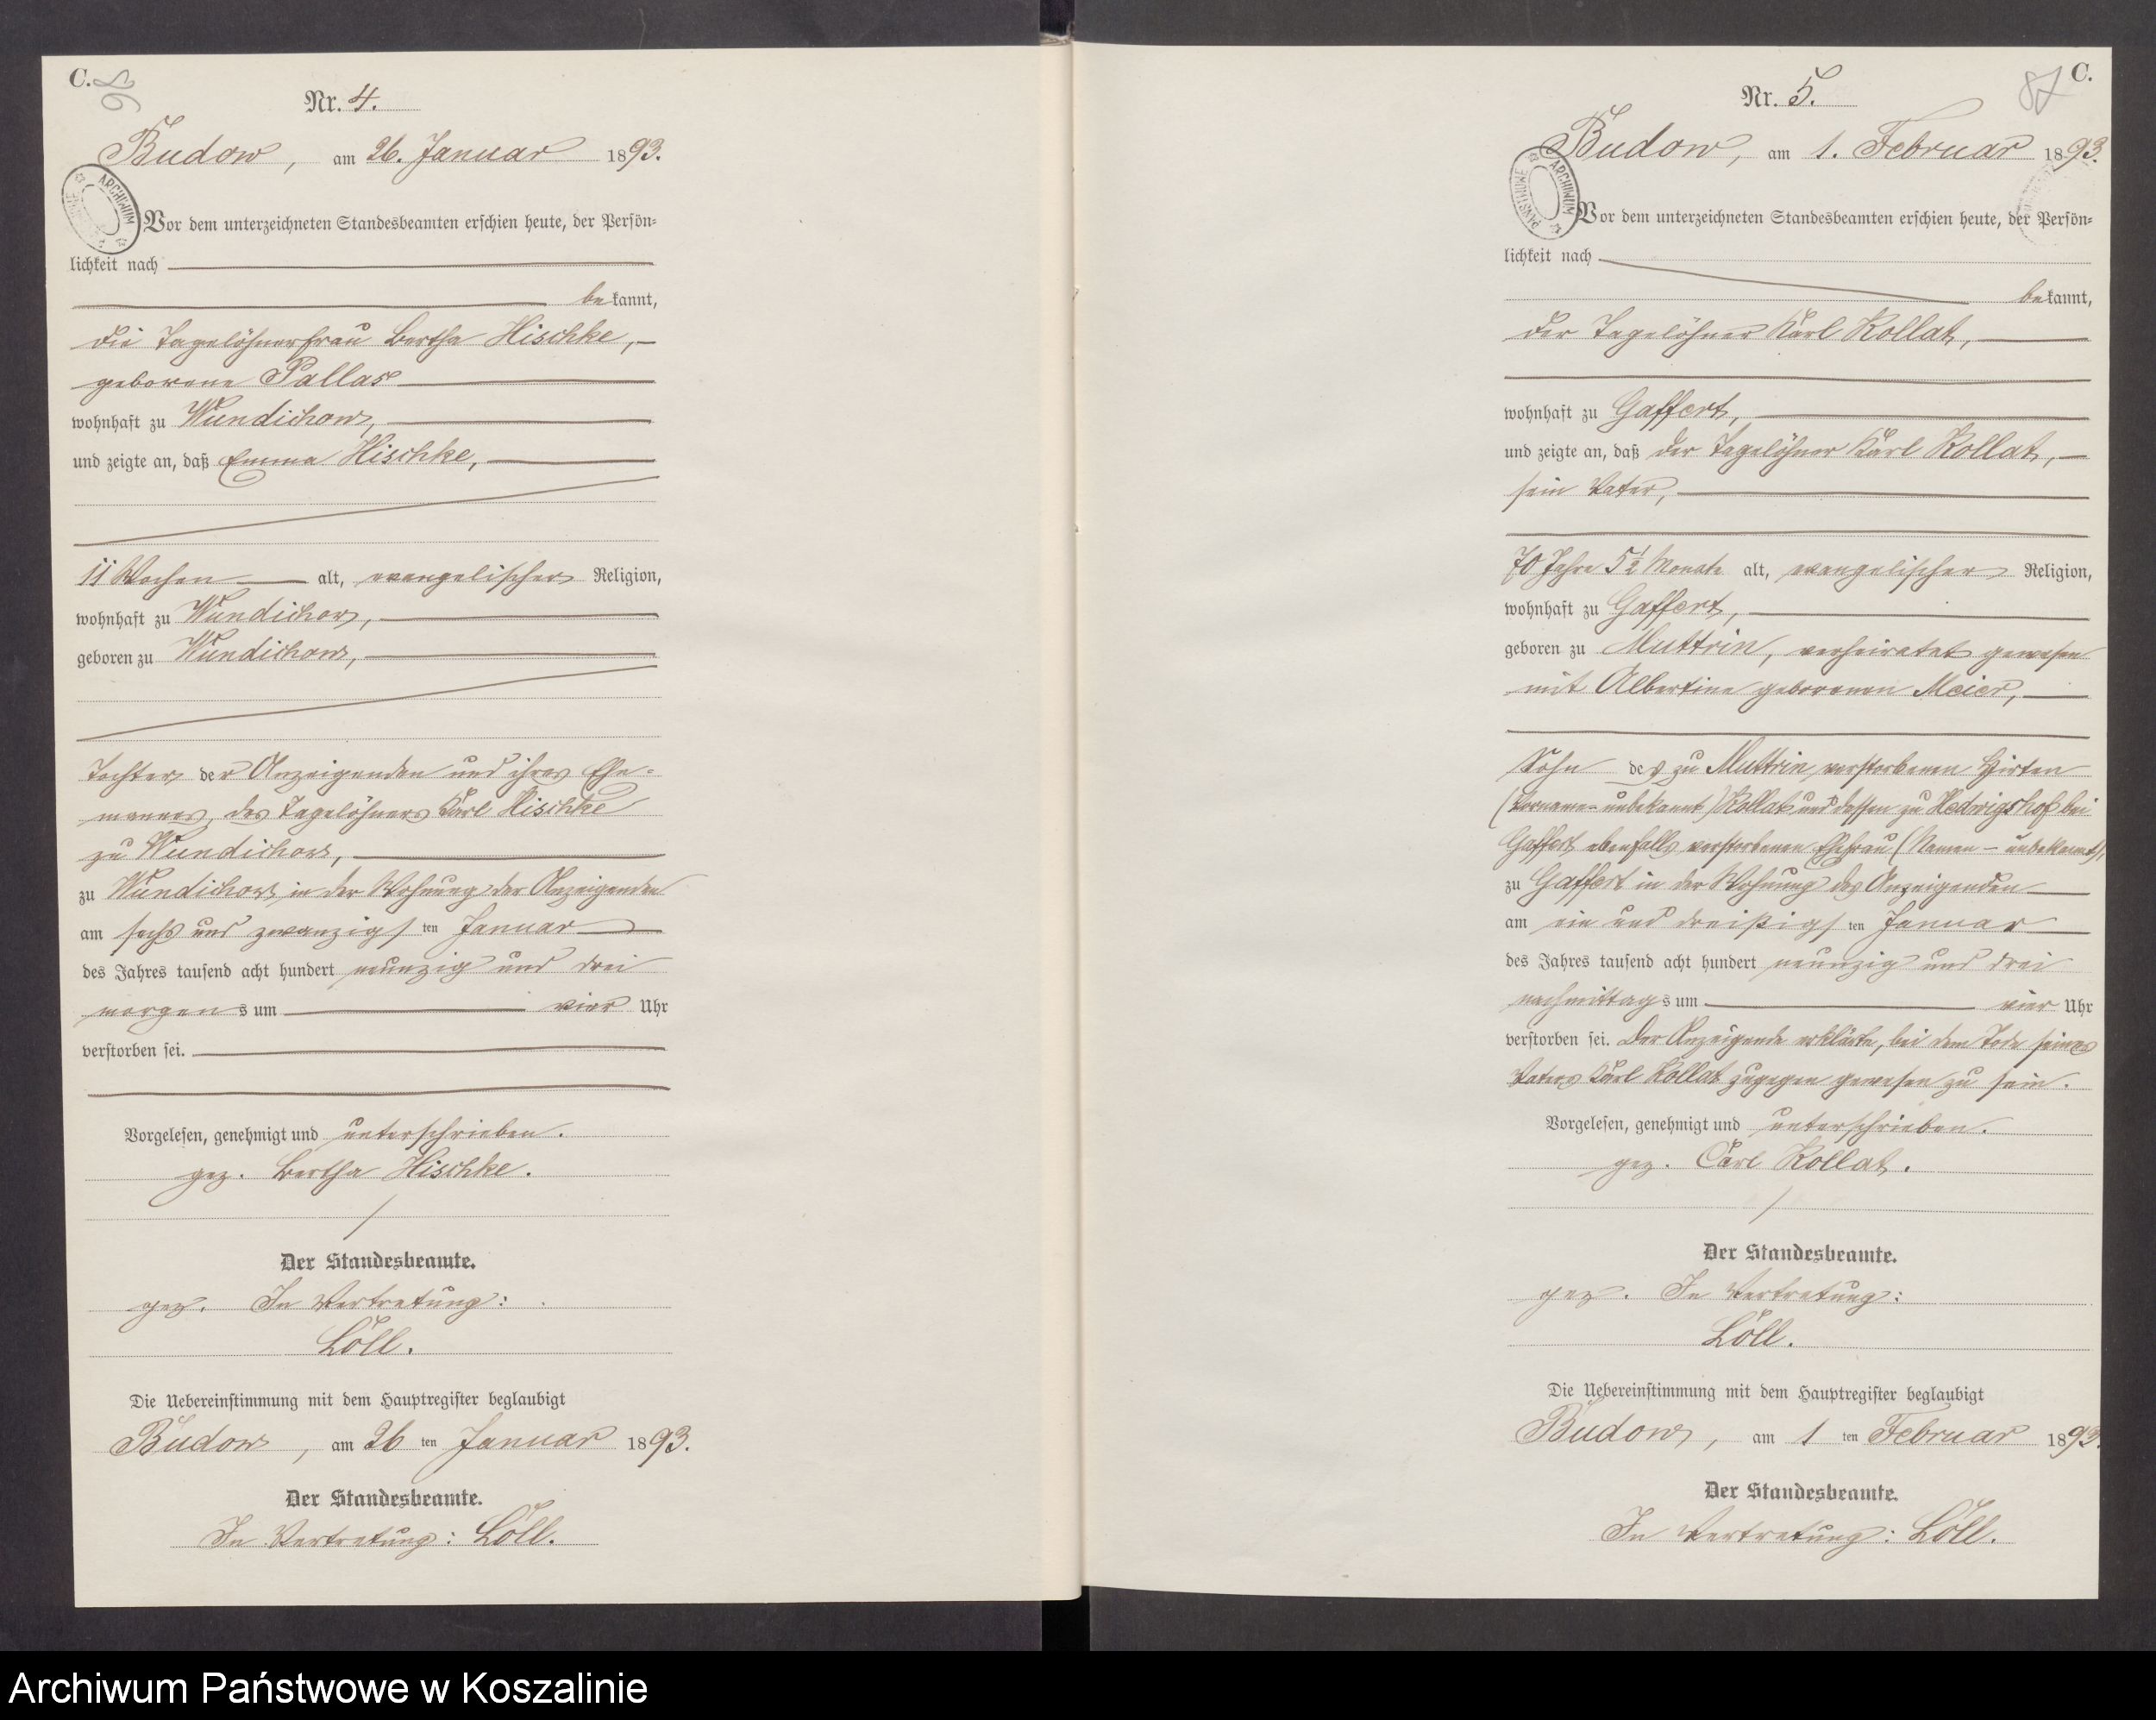 C.
Nr. 4.
Budow, am 26. Januar 1893.
ARCHIWUM
Vor dem unterzeichneten Standesbeamten erschien heute, der Persön=
lichkeit nach
bekannt,
die Tagelöhnerfrau Bertha Hischke,
geborene Pallas
wohnhaft zu Wundichow,
und zeigte an, daß Emma Hischke,
11 Wochen alt, evangelischer Religion,
wohnhaft zu Wundichow,
geboren zu Wundichow,
Tochter der Anzeigenden und ihres Ehe-
mannes, des Tagelöhners Karl Hischke
zu Wundichow,
zu Wundichow in der Wohnung der Anzeigenden
am sechs und zwanzigsten Januar
des Jahres tausend acht hundert neunzig und drei
morgens um vier Uhr
verstorben sei.
Vorgelesen, genehmigt und unterschrieben.
gez. Bertha Hischke.
Der Standesbeamte.
gez. In Vertretung:
Löll.
Die Uebereinstimmung mit dem Hauptregister beglaubigt
Budow, am 26ten Januar 1893.
Der Standesbeamte.
In Vertretung: Löll.
87
C.
Nr. 5.
Budow, am 1. Februar 1893.
ARCHIWUM PAŃSTWOWE
Vor dem unterzeichneten Standesbeamten erschien heute, der Persön=
lichkeit nach
bekannt,
der Tagelöhner Karl Kollat,
wohnhaft zu Gaffert,
und zeigte an, daß der Tagelöhner Karl Kollat,
sein Vater,
70 Jahre 5½ Monate alt, evangelischer Religion,
wohnhaft zu Gaffert,
geboren zu Muttrin, verheiratet gewesen
mit Albertine geborenen Meier,
Sohn des zu Muttrin verstorbenen Hirten
(Vorname - unbekannt) Kollat und dessen zu Hedwigshof bei
Gaffert ebenfalls verstorbenen Ehefrau (Namen - unbekannt),
zu Gaffert in der Wohnung des Anzeigenden
am ein und dreißigsten Januar
des Jahres tausend acht hundert neunzig und drei
nachmittags um vier Uhr
verstorben sei. Der Anzeigende erklärte, bei dem Tode seines
Vaters Karl Kollat zugegen gewesen zu sein.
Vorgelesen, genehmigt und unterschrieben.
gez. Carl Kollat.
Der Standesbeamte.
gez. In Vertretung:
Löll.
Die Uebereinstimmung mit dem Hauptregister beglaubigt
Budow, am 1ten Februar 1893.
Der Standesbeamte.
In Vertretung: Löll.
Archiwum Państwowe w Koszalinie